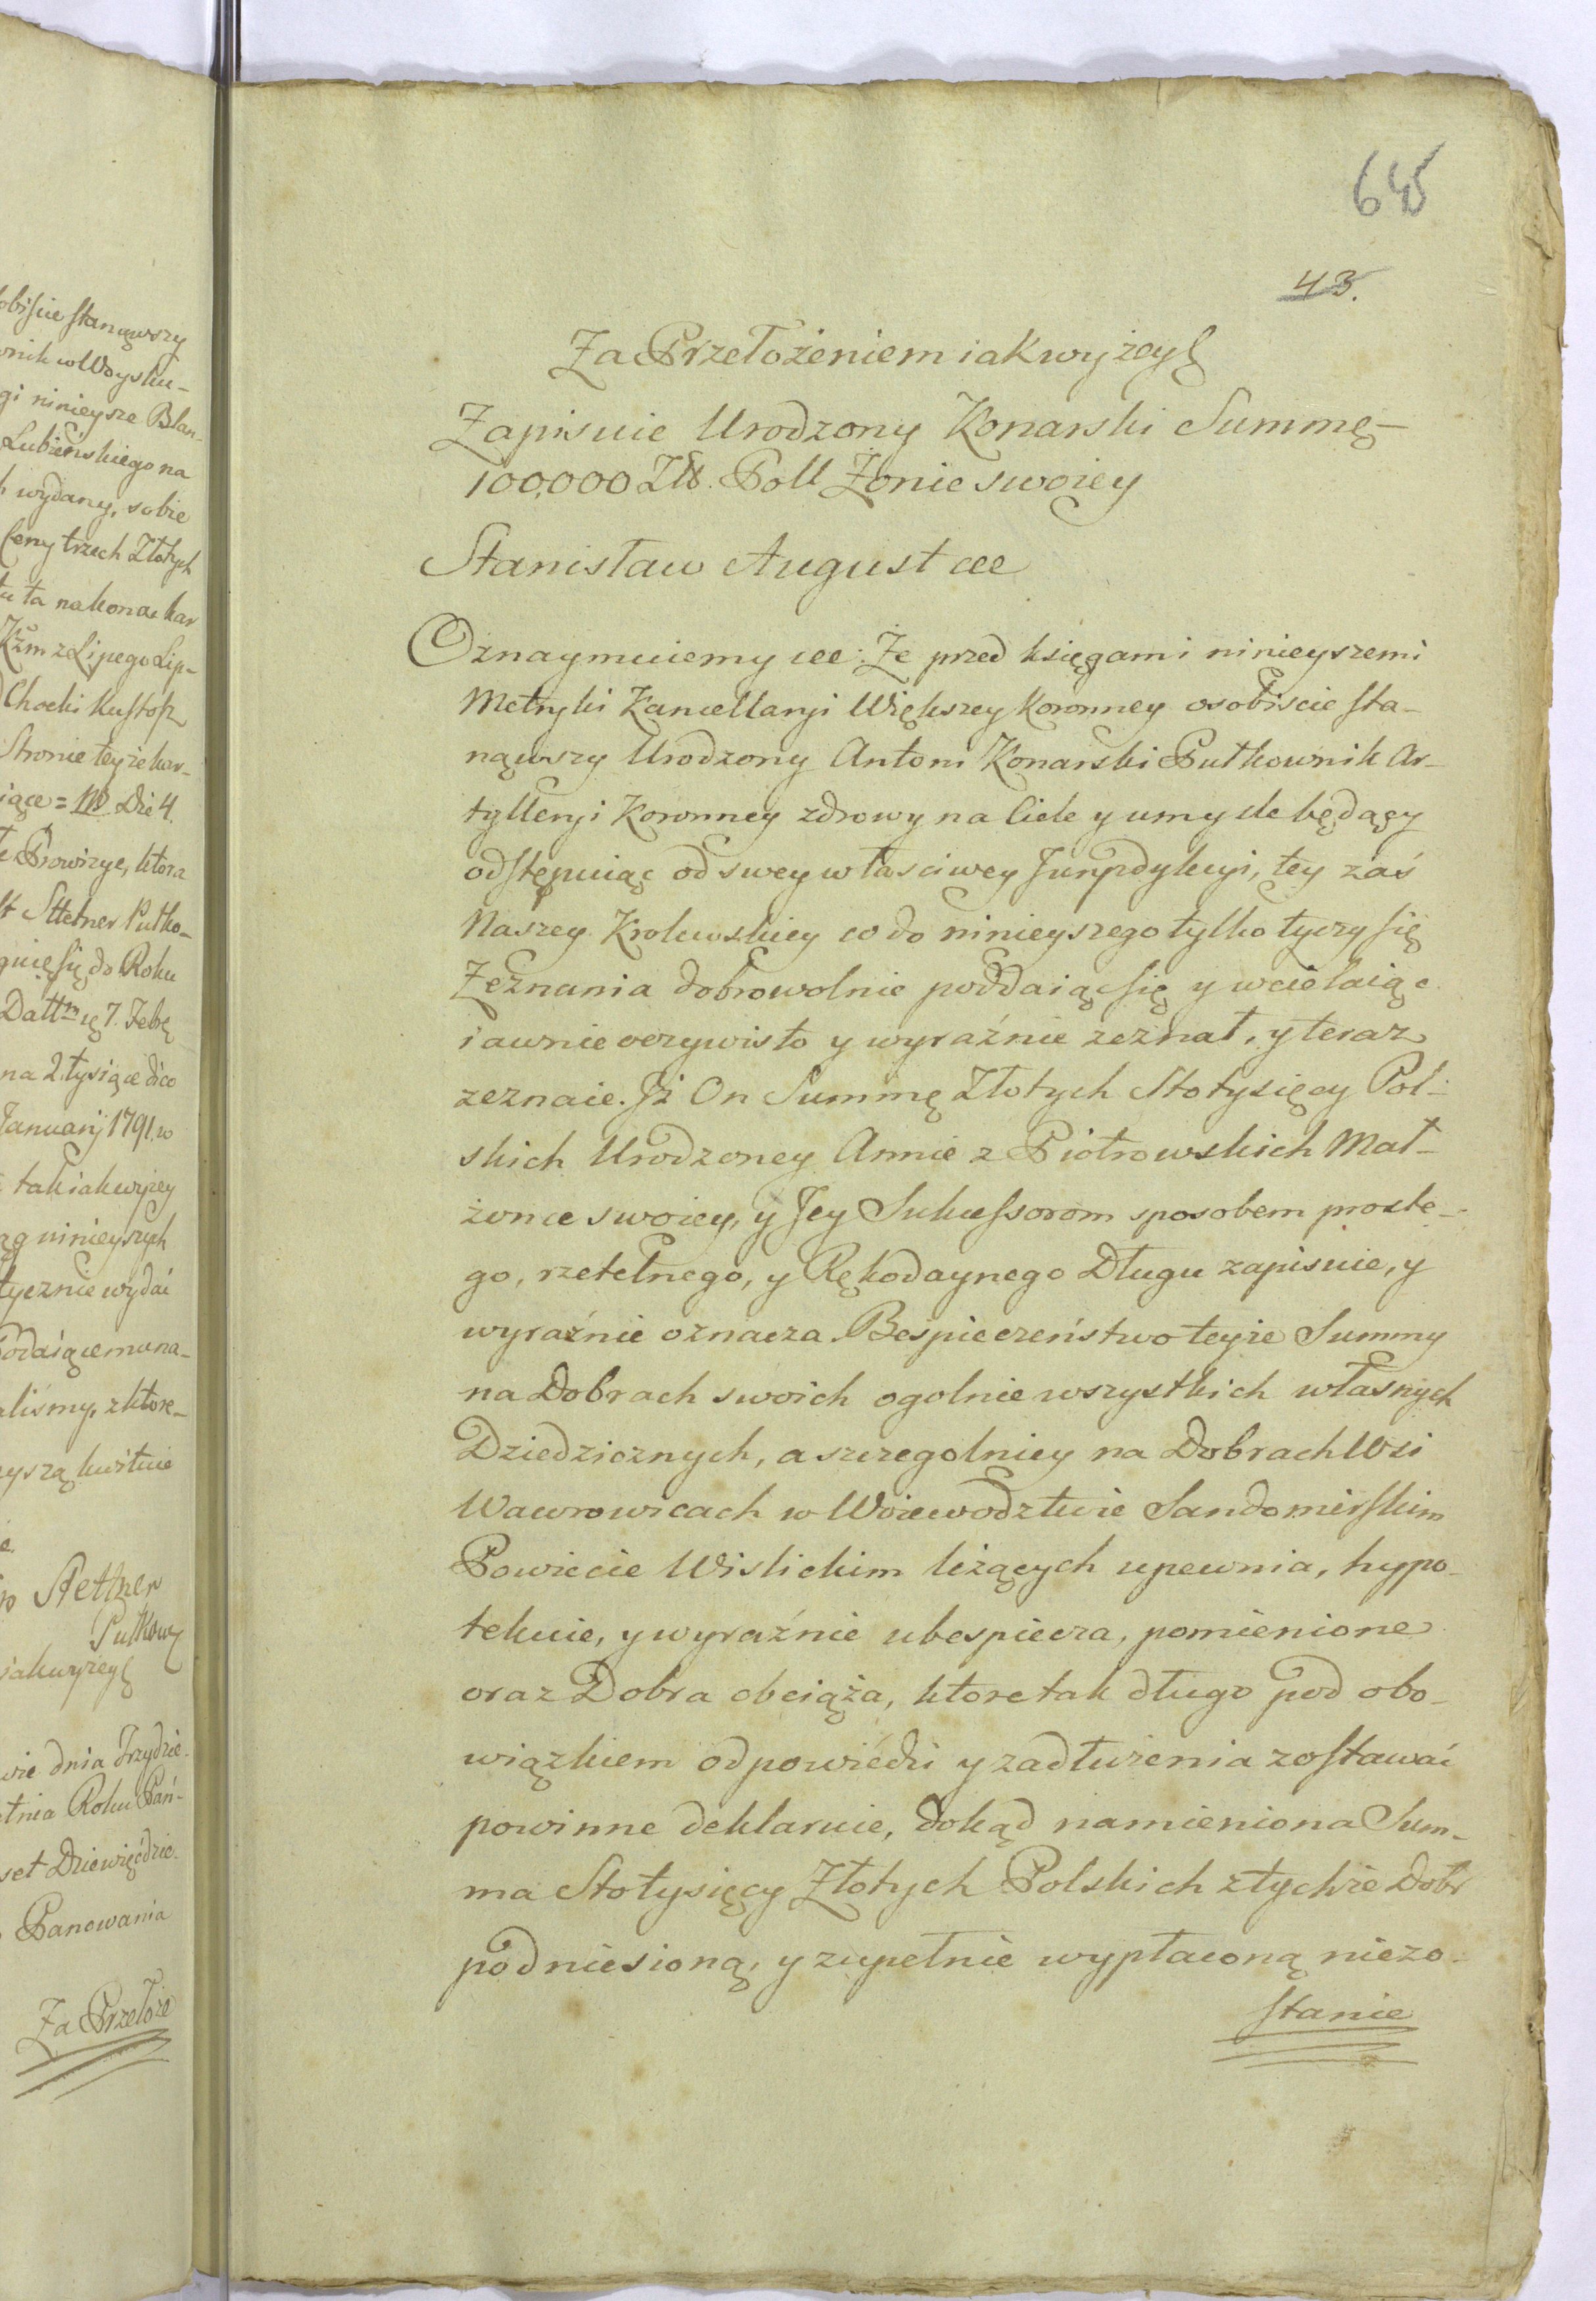 obiście stanąwszy
wnik w Woysku-
gi ninieysze Blan-
Lubieńskiego na
wydany, sobie
Ceny trzech Złotych
ta na koncu kar
Kżm z Lipego Lip-
Chocki Kustosz
Stronie teyże kar-
iące = Die 4.
Prowizye, ktora
Stetner Pułko-
się do Roku
Dattm 7. Febr
na 2. tysiące dico
Januarij 1791. w
tak iak wyżey
ninieyszych
tycznie wydać
Podaiącemu na-
liśmy, z ktore-
yszą kwituie
Stettner
Pułkow
iak wyżey
wie dnia Trzydzie-
tnia Roku Pań-
set Dziewięćdzie-
Panowania
Za Przełoże
645
43.
Za Przełożeniem iak wyżey
Zapisuie Urodzony Konarski Summę-
100,000 Zł. Poll Żonie swoiey
Stanisław August etc
Oznaymuiemy etc: Że przed księgami ninieyszemi
Metryki Kancellaryi Większey Koronney osobiscie sta-
nąwszy Urodzony Antoni Konarski Pułkownik Ar-
tylleryi Koronney zdrowy na Ciele y umysle będący
odstępuiąc od swey własciwey Juryzdykcyi, tey zaś
Naszey Krolewskiey co do ninieyszego tylko tyczy się
Zeznania dobrowolnie poddaiąc się y wcielaiąc
iawnie oczywisto y wyraźnie zeznał, y teraz
zeznaie. Jż On Summę Złotych Stotysięcy Pol-
skich Urodzoney Annie z Piotrowskich Mał-
żonce swoiey, y Jey Sukcessorom sposobem proste-
go, rzetelnego, y Rękodaynego Długu zapisuie, y
wyraźnie oznacza. Bespieczeństwo teyże Summy
na Dobrach swoich ogolnie wszystkich własnych
Dziedzicznych, a szczegolniey na Dobrach Wsi
Wawrowicach w Woiewodztwie Sandomirskim
Powiecie Wislickim leżących upewnia, hypo-
tekuie, y wyraźnie ubespiecza, pomienione
oraz Dobra obciąża, ktore tak długo pod obo-
wiązkiem odpowiedzi y zadłużenia zostawać
powinne deklaruie, dokąd namieniona Sum-
ma Stotysięcy Złotych Polskich z tychże Dobr
podniesioną, y zupełnie wypłaconą niezo-
stanie